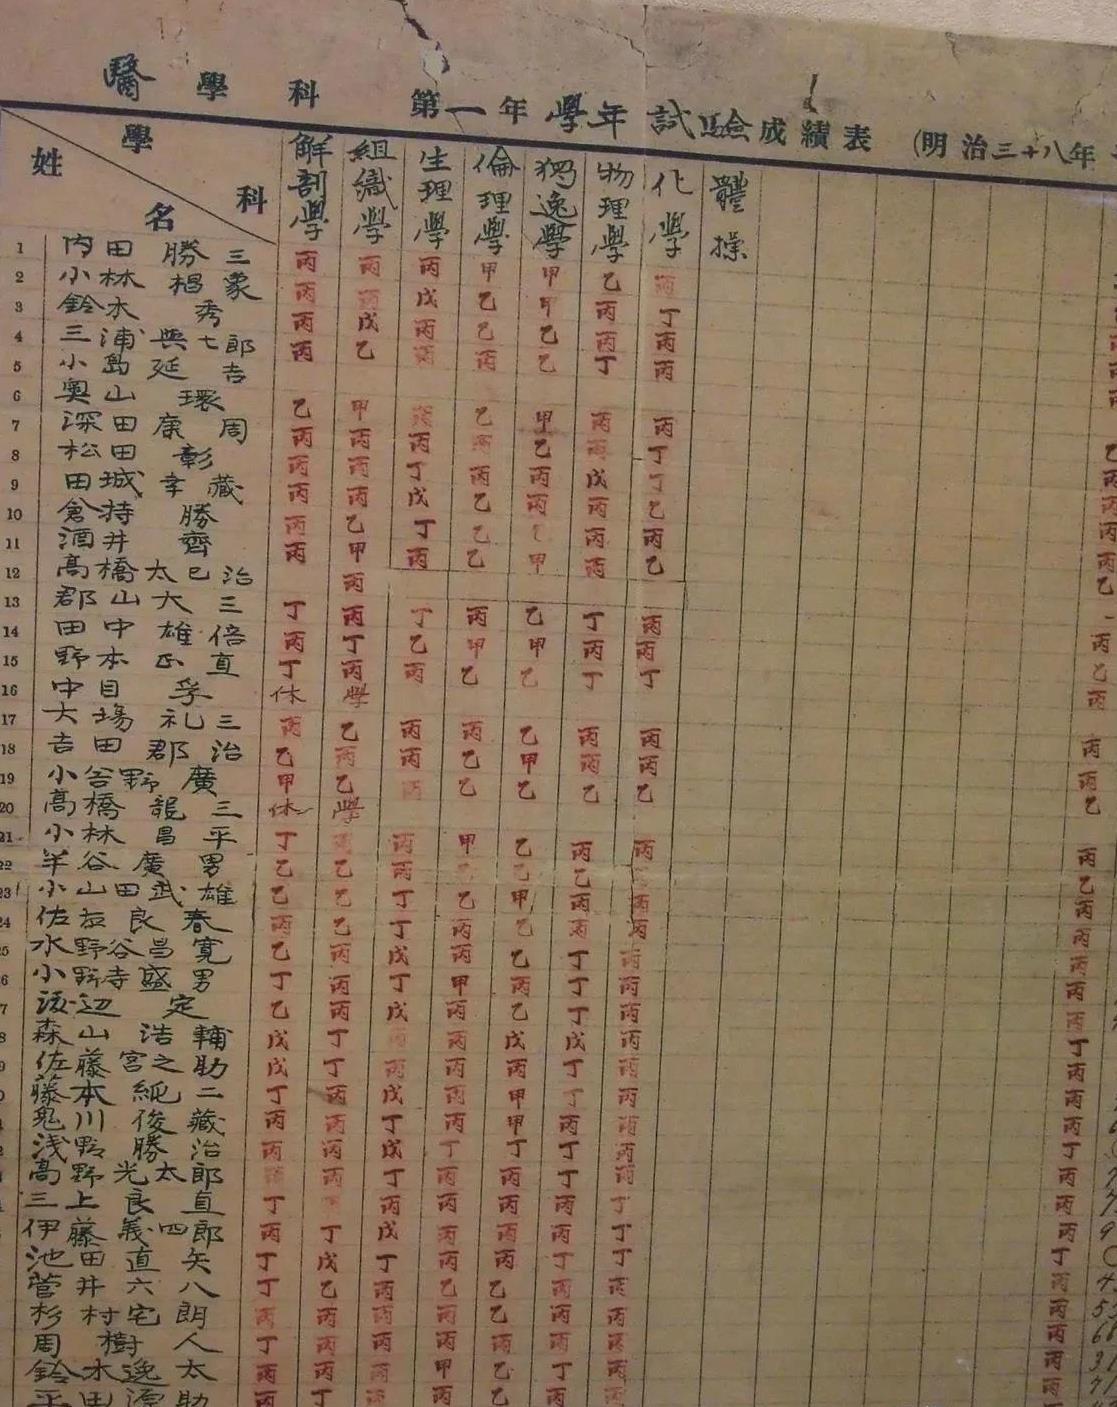 醫學科 第一年學年試驗成績表 (明治三十八年
學科
姓名
解剖學 組織學 生理學 倫理學 獨逸學 物理學 化學 體操
1 内田勝三 丙 丙 丙 甲 甲 乙 丙
2 小林榲象 丙 丙 戊 乙 甲 丙 丁
3 鈴木秀 丙 戊 丙 乙 乙 丙 丙 丙
4 三浦與七郎 丙 乙 丙 丙 乙 丁 丙 丙
5 小島延吉
6 奥山環 乙 甲 丙 乙 甲 丙 丙 乙
7 深田康周 丙 丙 丙 丙 乙 丙 丁 丙
8 松田彰 丙 丙 丁 丙 丙 戊 丁 丙
9 田城幸藏 丙 丙 戊 乙 丙 丙 乙 丙
10 倉持勝 丙 乙 丁 乙 乙 丙 丙 丙
11 酒井齊 丙 甲 丙 乙 甲 丙 乙 乙
12 髙橋太巳治 丙
13 郡山大三 丁 丙 丁 丙 乙 丁 丙 丙
14 田中雄倍 丙 丁 乙 甲 甲 丙 丙 乙
15 野本正直 丁 丙 丙 乙 乙 丁 丁 丙
16 中目孚 休學
17 大場礼三 丙 乙 丙 丙 乙 丙 丙 丙
18 吉田郡治 乙 丙 丙 乙 甲 丙 丙 丙
19 小谷野廣 甲 乙 丙 乙 乙 乙 乙 乙
20 髙橋龍三 休學
21 小林昌平 丁 丙 丙 甲 乙 丙 丙 丙
22 羊谷廣男 乙 乙 丙 乙 乙
23 小山田武雄 乙 乙 丁 乙 甲 丙 丙 丙
24 佐友良春 丙 乙 丁 丙 乙 丙 丙 丙
5 水野谷昌寛 乙 丙 戊 丙 乙 丁 丙 丙
6 小野寺盛男 丁 丙 丁 甲 丙 丁 丙 丙
7 渡辺定 乙 丙 戊 丙 乙 丁 丙 丙
8 森山浩輔 戊 丁 丙 丙 戊 戊 丙 丁
9 佐藤宮之助 戊 丁 丙 丙 丙 丁 丙 丙
藤本純二 丁 丙 戊 丙 甲 丁 丙 丙
鬼川俊藏 丙 丙 丁 丙 甲 丙 丙 丙
浅野勝治 丙 丙 戊 丁 丁 丁 丙 丁
髙野光太郎 丙 丙 丁 丙 丙 丁 丙 丙
三上良直 丁 丙 丙 丙 丙 丙 丁 丙
伊藤義四郎 丙 丁 戊 丙 丙 丙 丁 丙
池田直矢 丁 戊 丁 丙 丙 丁 丁 丁
菅井六八 丁 乙 丙 乙 乙 丙 丙 丙
杉村宅朗 丙 丙 丙 丙 乙 丙 丙 丙
周樹人 丁 丙 丙 丙 丙 丙 丙 丙
鈴木逸太 丙 丙 丙 甲 乙 丁 丙 丙
平田源助 丙 丁 丙 丙 乙 丙 丙 丙